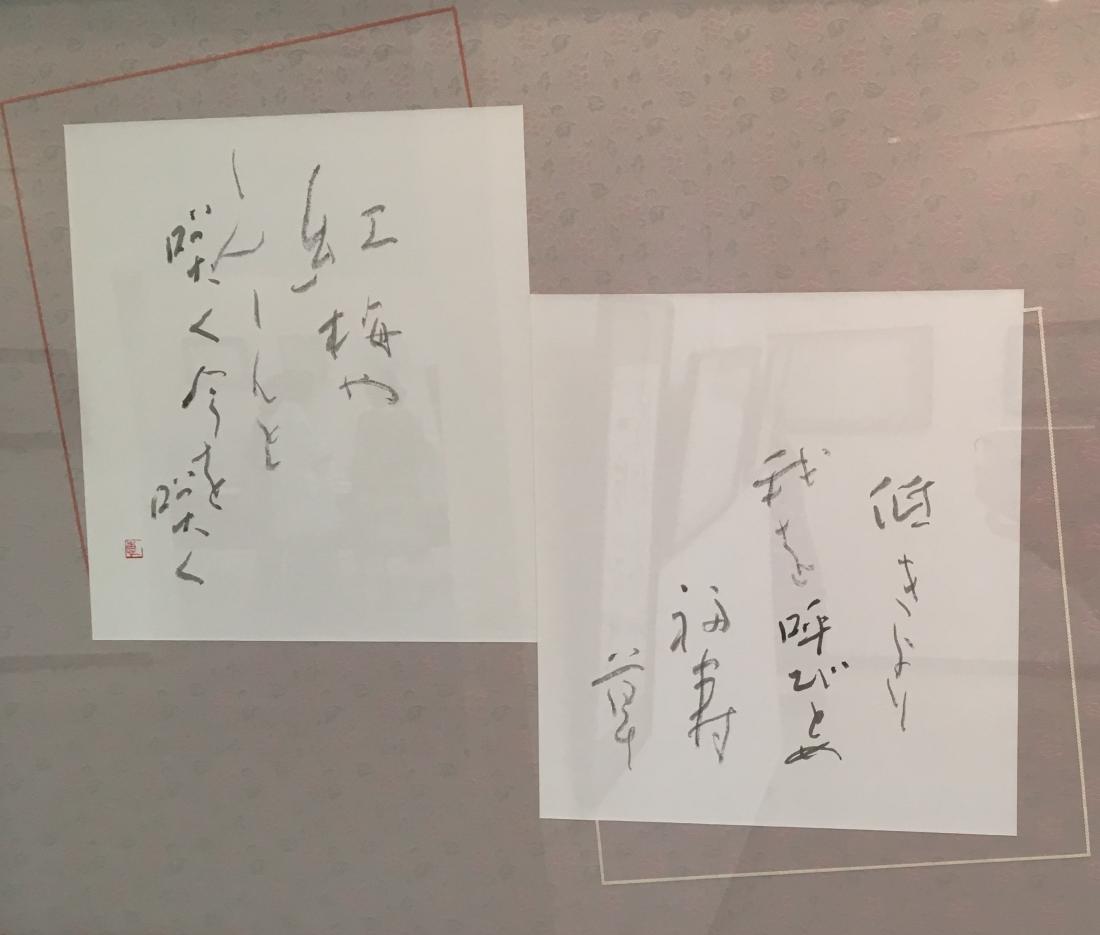 低きより
我を呼びとめ
福寿
草
紅梅や
しんしんと
咲く今を咲く